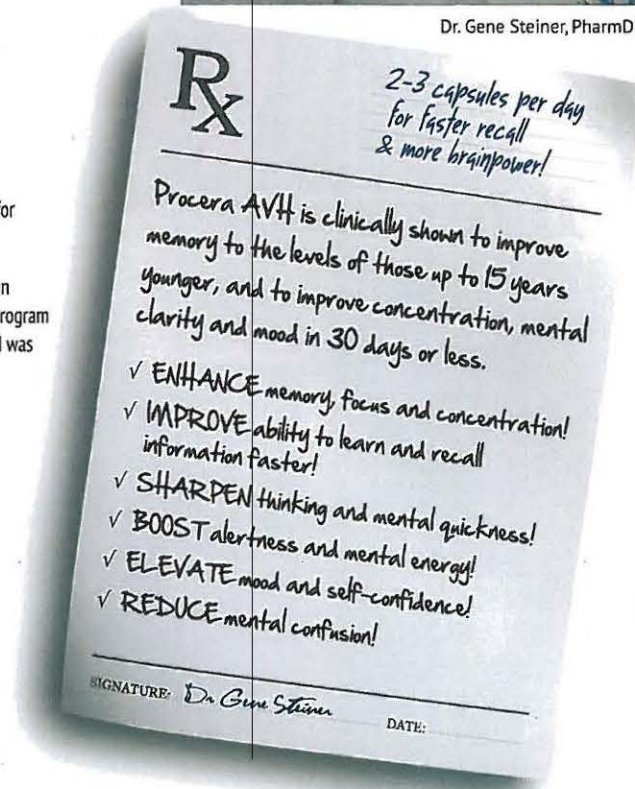 Dr. Gene Steiner, PharmD
for
n
rogram
was
Rx
2-3 capsules per day
for faster recall
& more brainpower!
Procera AVH is clinically shown to improve
memory to the levels of those up to 15 years
younger, and to improve concentration, mental
clarity and mood in 30 days or less.
√ ENHANCE memory, focus and concentration!
√ IMPROVE ability to learn and recall
information faster!
√ SHARPEN thinking and mental quickness!
√ BOOST alertness and mental energy!
√ ELEVATE mood and self-confidence!
√ REDUCE mental confusion!
SIGNATURE: Dr Gene Steiner
DATE: